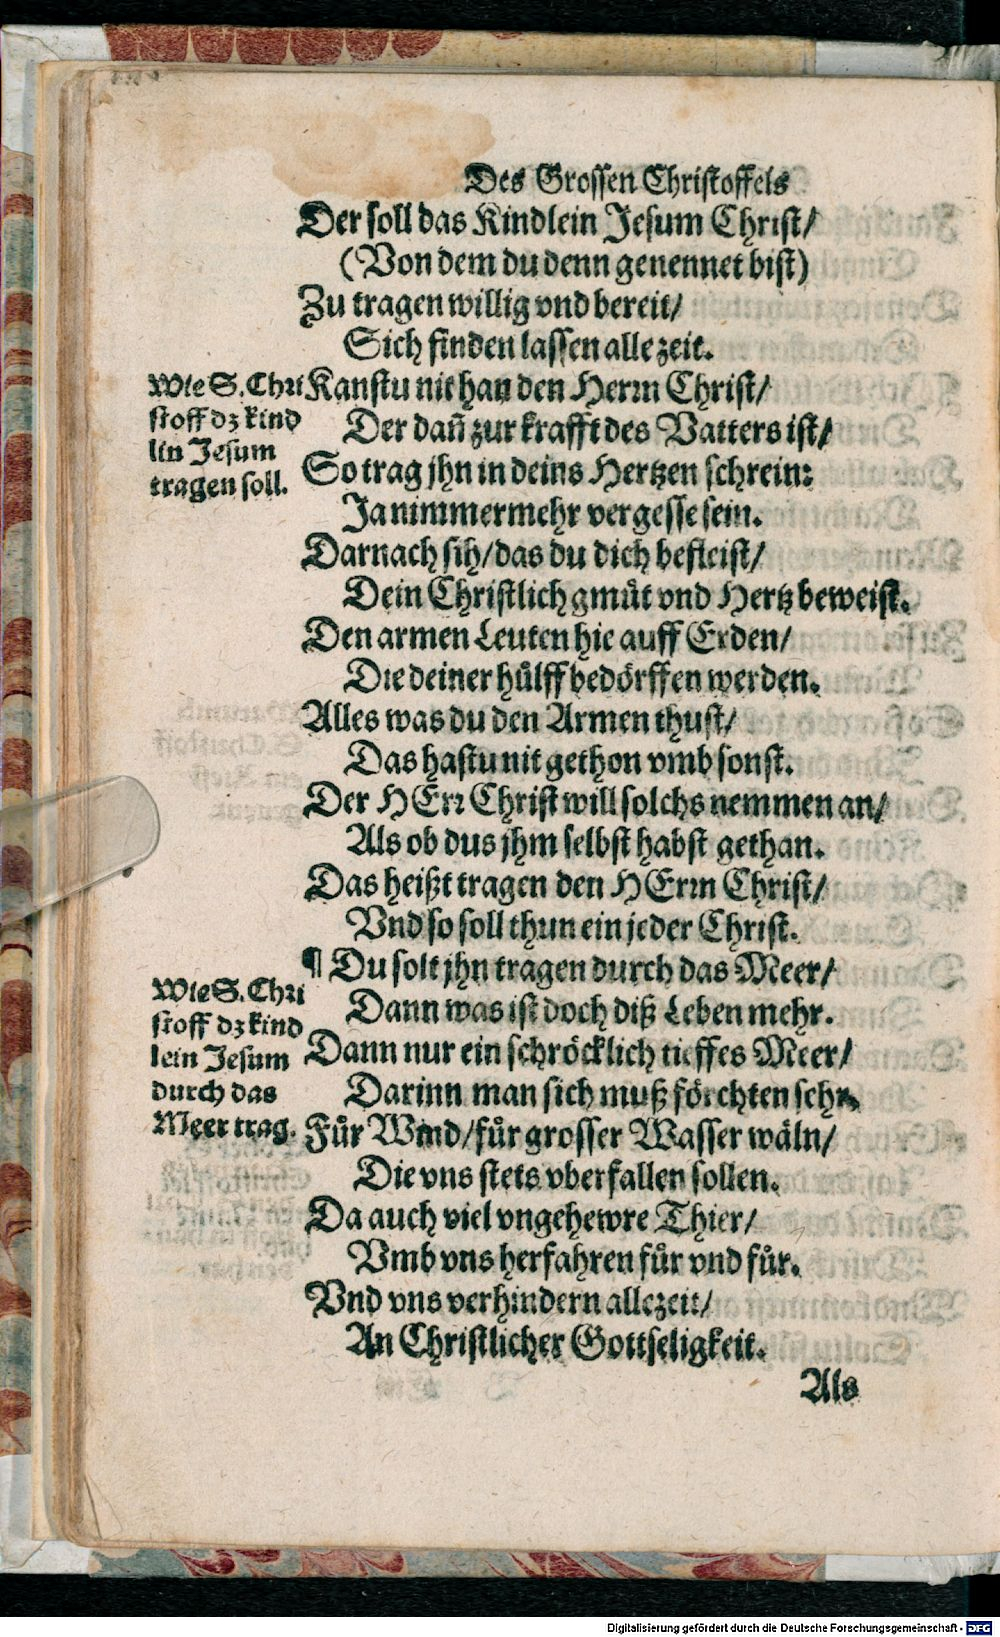 Des Grossen Christoffels
Der soll das Kindlein Jesum Christ/
(Von dem du denn genennet bist)
Zu tragen willig vnd bereit/
Sich finden lassen alle zeit.
Wie S. Chri
stoff dz kind
lin Jesum
tragen soll.
Kanstu nit han den Herrn Christ/
Der dañ zur krafft des Vatters ist/
So trag jhn in deins Hertzen schrein:
Ja nimmermehr vergesse sein.
Darnach sih/ das du dich befleist/
Dein Christlich gmuͤt vnd Hertz beweist.
Den armen Leuten hie auff Erden/
Die deiner huͤlff bedoͤrffen werden.
Alles was du den Armen thust/
Das hastu nit gethon vmb sonst.
Der HErr Christ will solchs nemmen an/
Als ob dus jhm selbst habst gethan.
Das heißt tragen den HErrn Christ/
Vnd so soll thun ein jeder Christ.
Wie S. Chri
stoff dz kind
lein Jesum
durch das
Meer trag.
¶ Du solt jhn tragen durch das Meer/
Dann was ist doch diß Leben mehr.
Dann nur ein schroͤcklich tieffes Meer/
Darinn man sich muß foͤrchten sehr.
Fuͤr Wind/ fuͤr grosser Wasser waͤln/
Die vns stets vberfallen sollen.
Da auch viel vngehewre Thier/
Vmb vns herfahren fuͤr vnd fuͤr.
Vnd vns verhindern allezeit/
An Christlicher Gottseligkeit.
Als
Digitalisierung gefördert durch die Deutsche Forschungsgemeinschaft - DFG